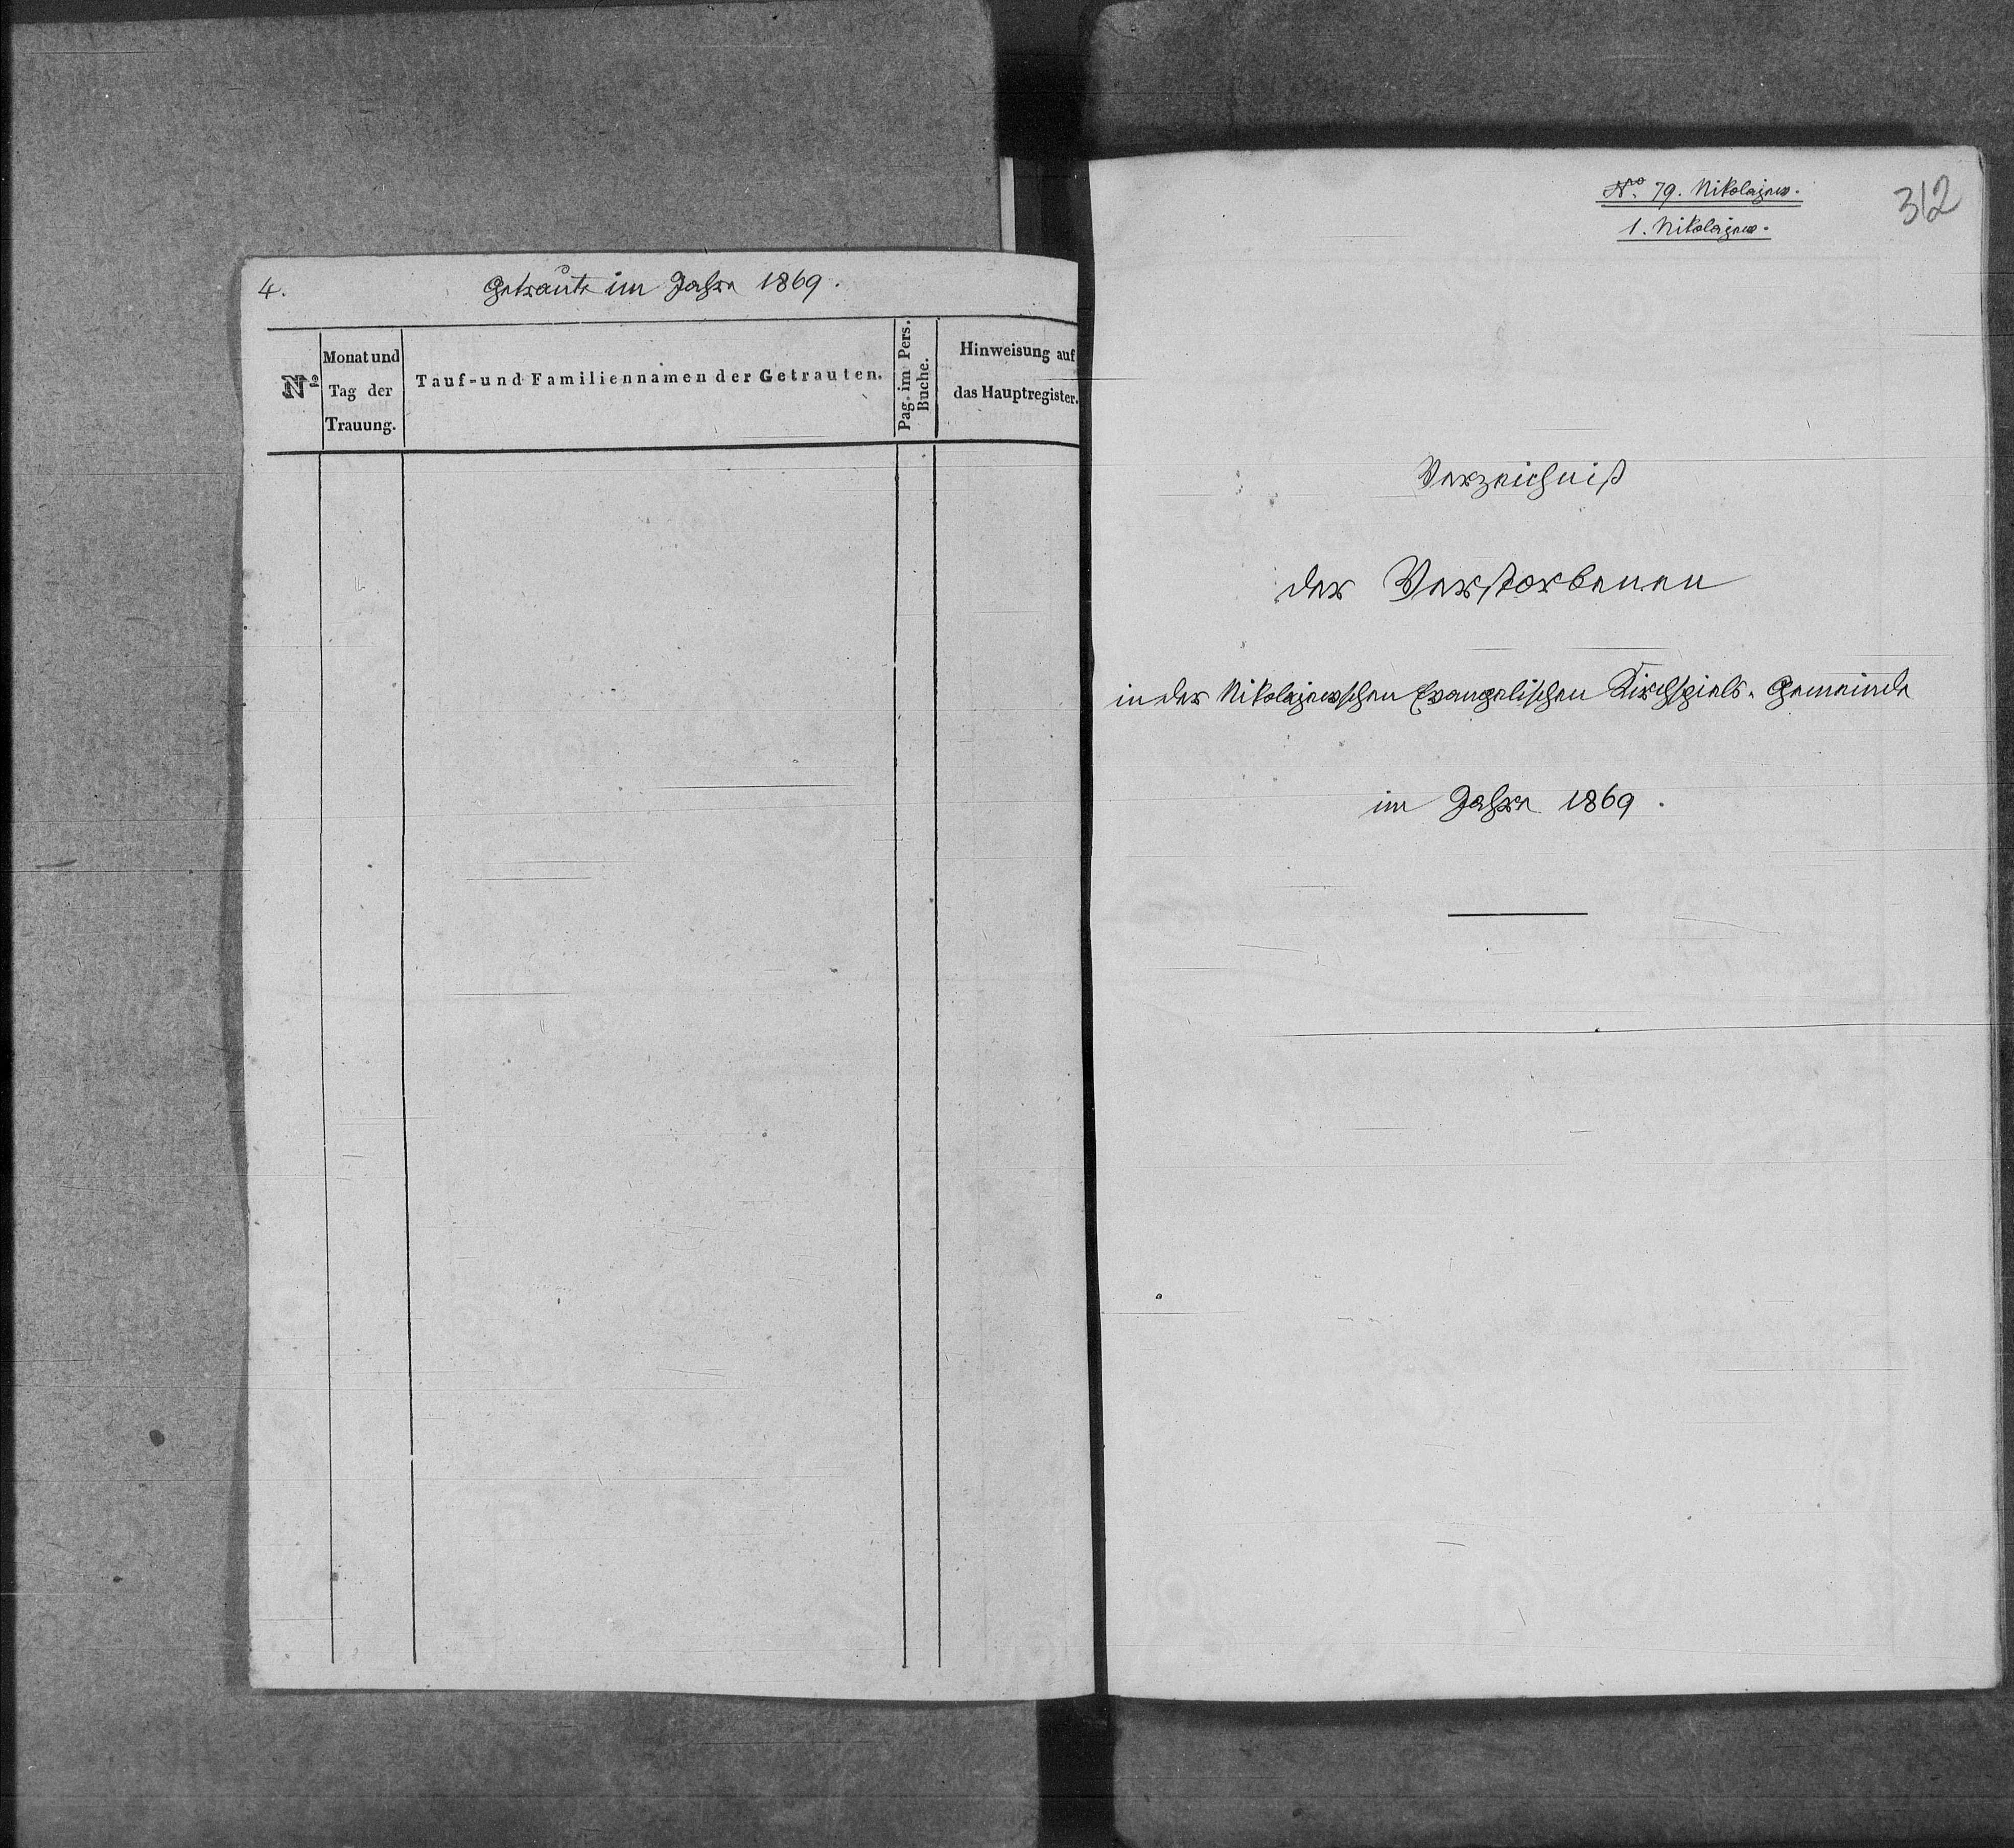 4.
Getraute im Jahre 1869.
No
Monat und
Tag der
Trauung.
Tauf- und Familiennamen der Getrauten.
Pag. im Pers.
Buche.
Hinweisung auf
das Hauptregister.
No. 79. Nikolajew.
1. Nikolajew.
312
Verzeichniß
der Verstorbenen
in der Nikolajewschen Evangelischen Kirchspiels-Gemeinde
im Jahre 1869.